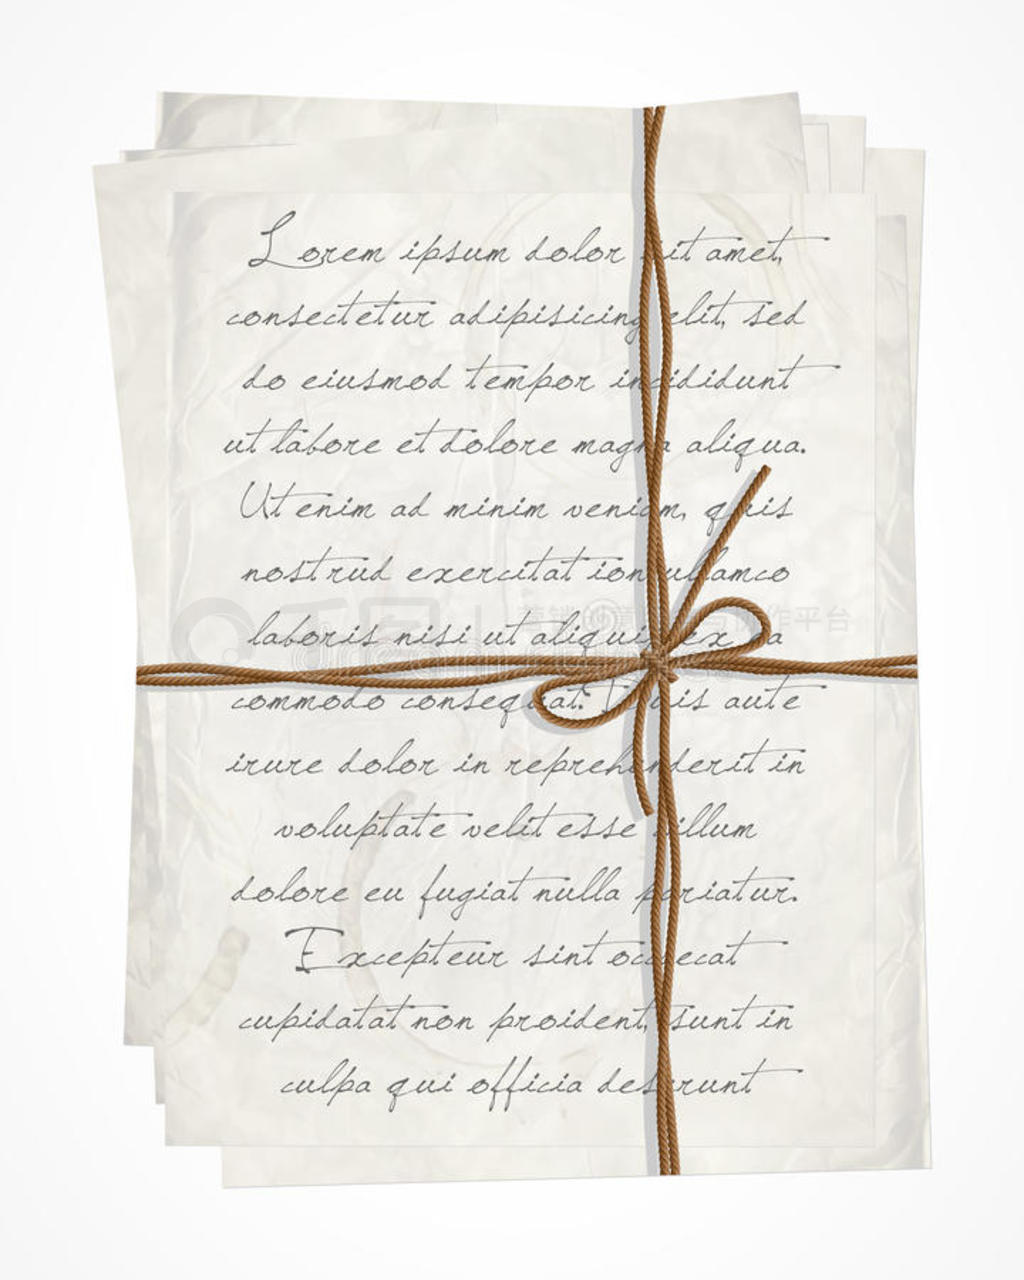 Lorem ipsum dolor sit amet,
consectetur adipisicing elit, sed
do eiusmod tempor incididunt
ut labore et dolore magna aliqua.
Ut enim ad minim veniam, quis
nostrud exercitation ullamco
laboris nisi ut aliquip ex ea
commodo consequat. Duis aute
irure dolor in reprehenderit in
voluptate velit esse cillum
dolore eu fugiat nulla pariatur.
Excepteur sint occaecat
cupidatat non proident, sunt in
culpa qui officia deserunt